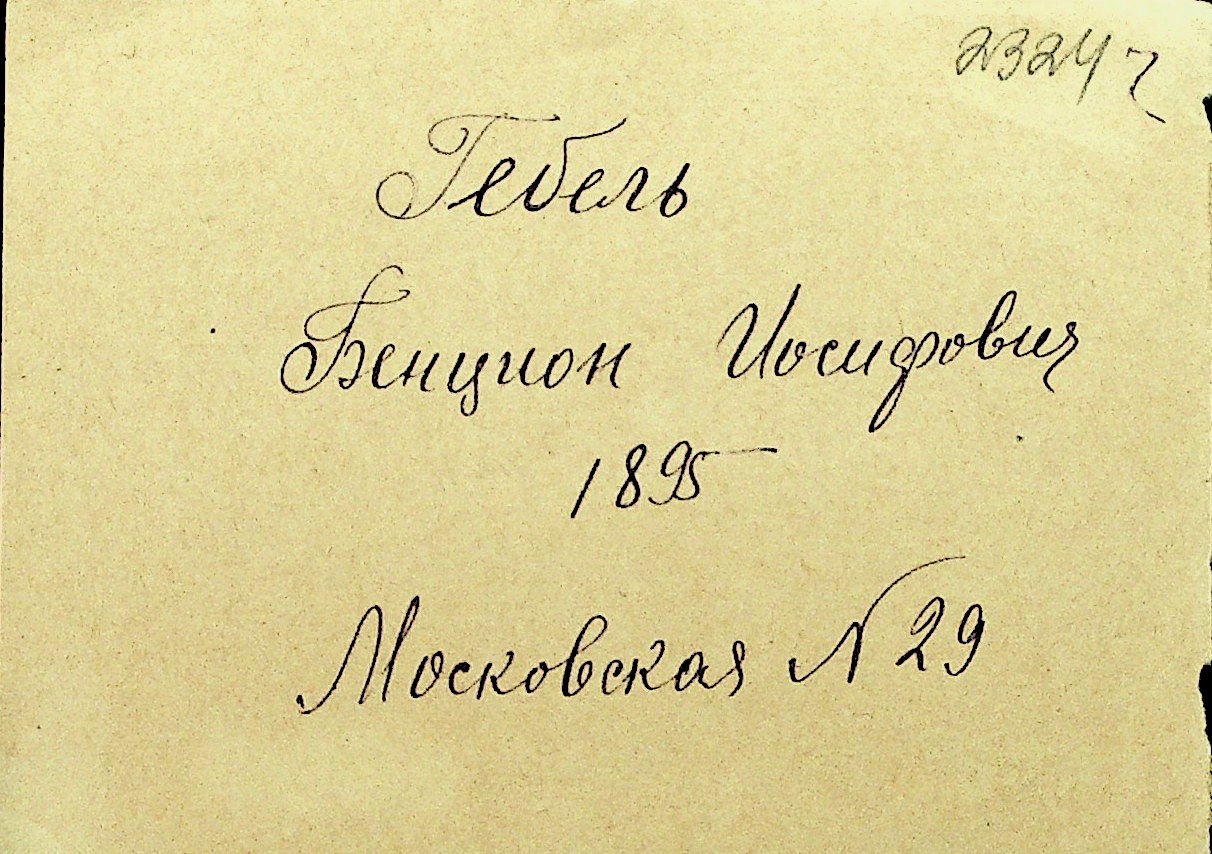 2324 ч
Гебель
Бенцион Иосифович
1895
Московская N 29